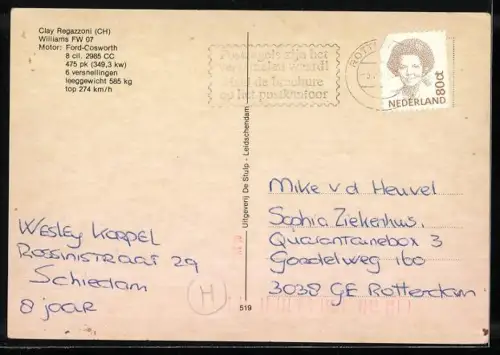 Clay Regazzoni (CH)
Williams FW 07
Motor: Ford-Cosworth
8 cil. 2985 CC
475 pk (349,3 kw)
6 versnellingen
leeggewicht 585 kg
top 274 km/h
Postzegels zijn het
verzamelen waard!
Haal de brochure
op het postkantoor
ROTT
80ct
NEDERLAND
Uitgeverij De Stulp - Leidschendam
519
Wesley Korpel
Rossinistraat 29
Schiedam
8 jaar
H
Mike v d Heuvel
Sophia Ziekenhuis,
Quarantainebox 3
Goordelweg 160
3038 GE Rotterdam